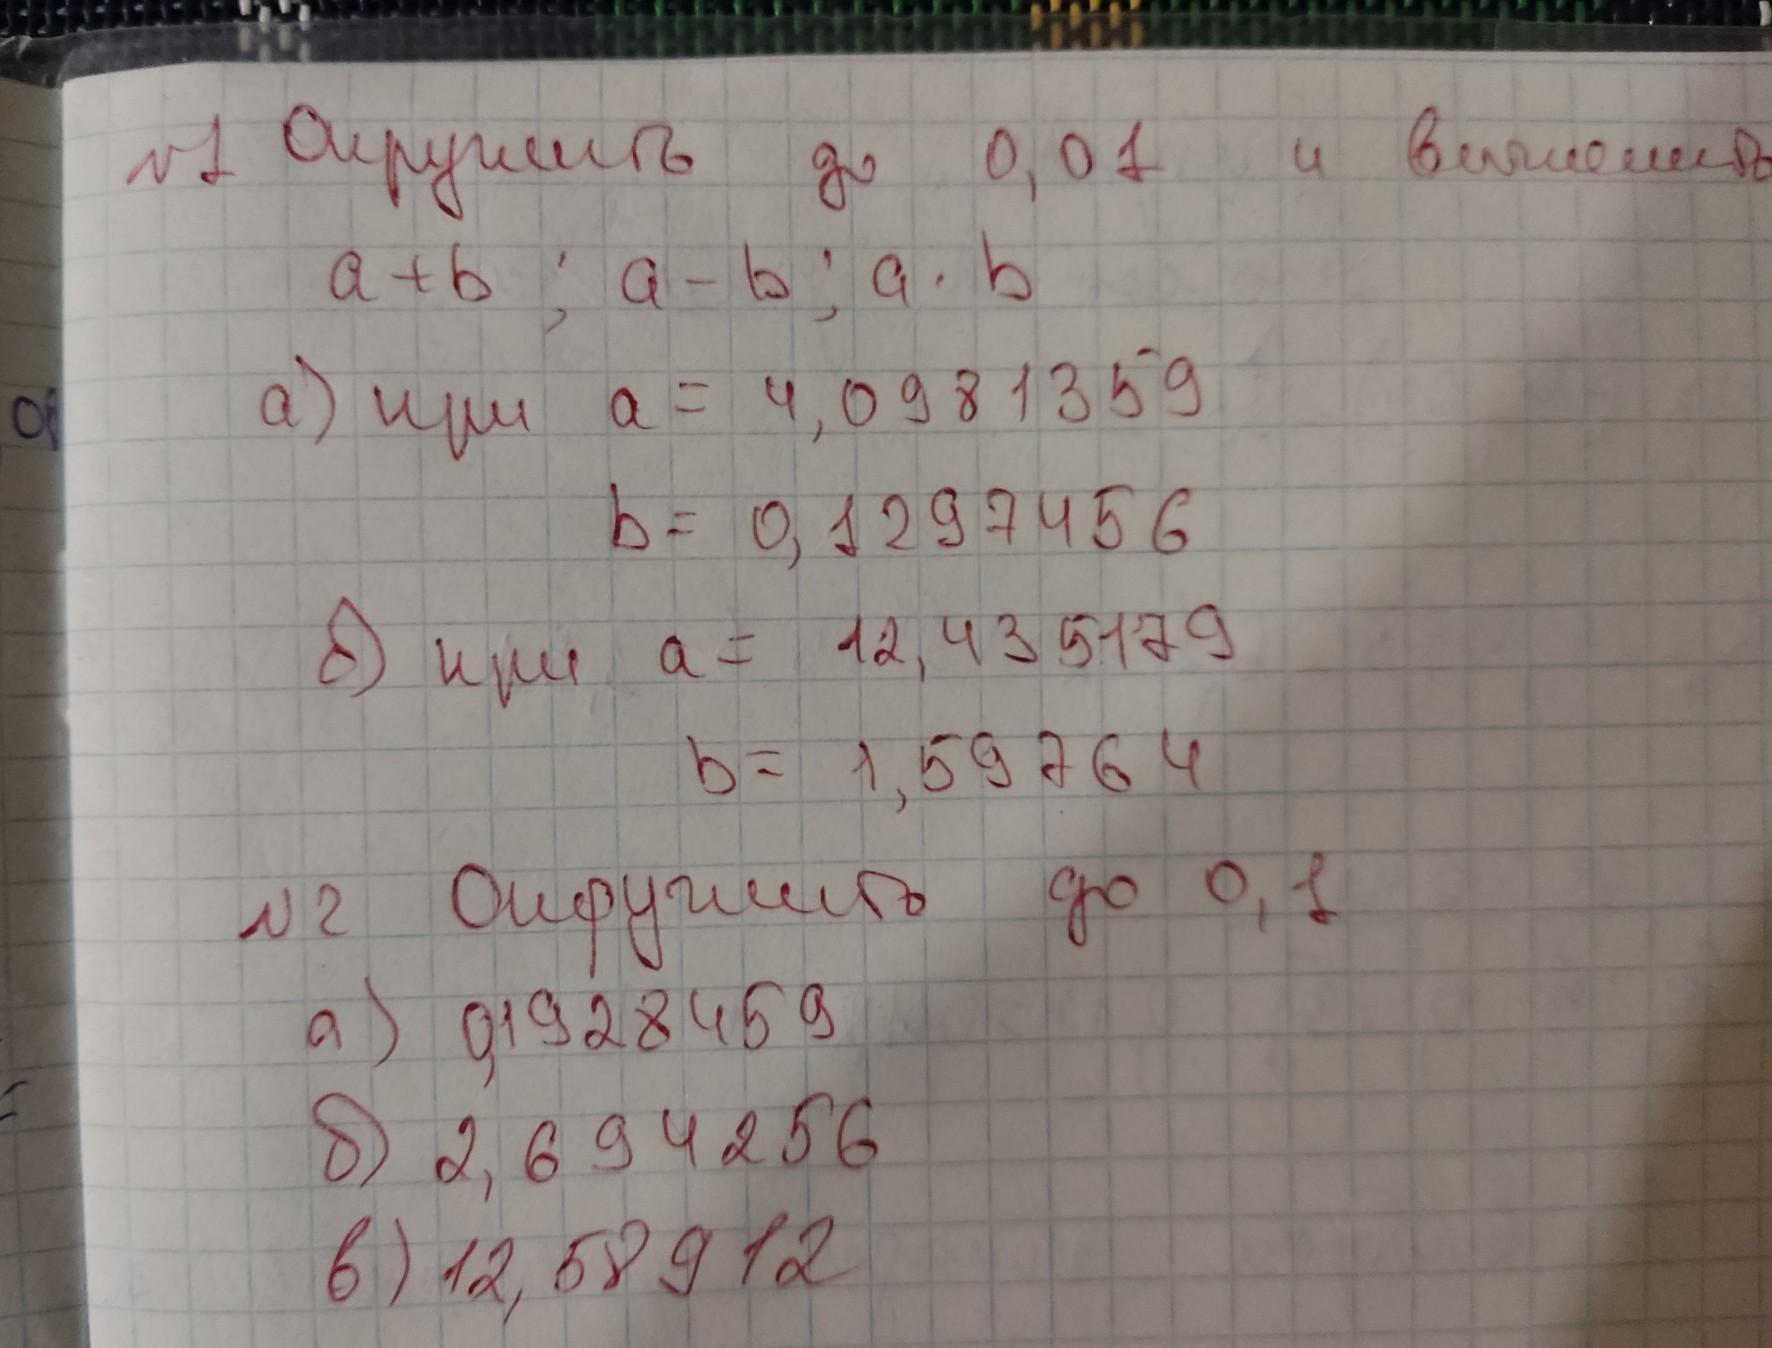 №1 Округлить до 0,01 и вычислить
a+b; a-b; a·b
а) при a = 4,0981359
b = 0,1297456
б) при a = 12,435179
b = 1,59764
№2 Округлить до 0,1
а) 0,1928459
б) 2,694256
в) 12,58912